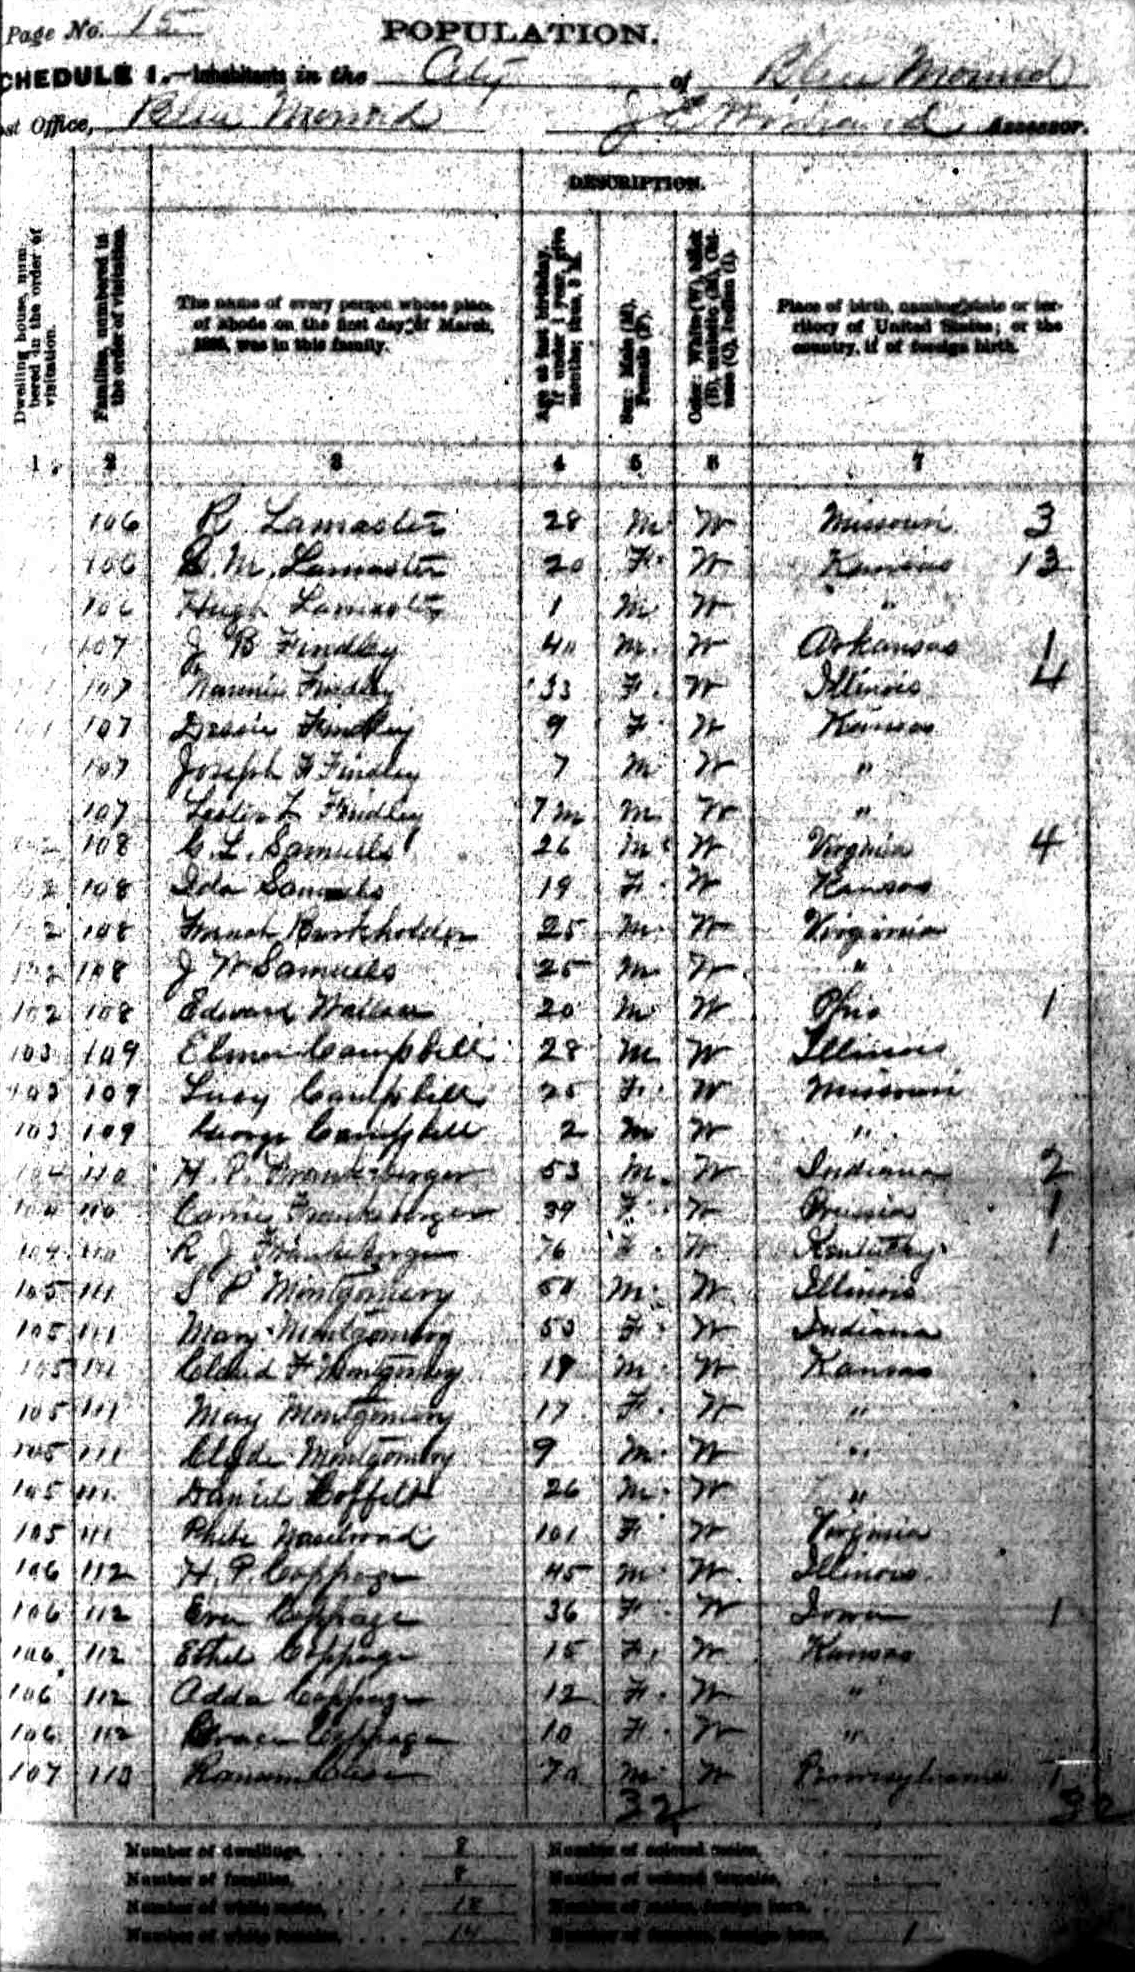 Page No. 15
POPULATION.
SCHEDULE 1.—Inhabitants in the City of Blue Mound
Post Office, Blue Mound Assessor.
DESCRIPTION.
Dwelling house, numbered in the order of visitation.
Families, numbered in the order of visitation.
The name of every person whose place of abode on the first day of March, was in this family.
Age at last birthday. If under 1 year, give months; thus, 3 M.
Sex: Male (M), Female (F).
Color: White (W), Black (B), mulatto (M), Chinese (C), Indian (I).
Place of birth, naming state or territory of United States; or the country, if of foreign birth.
1 2 3 4 5 6 7
106 R. Lamaster 28 M W Missouri 3
106 M. Lamaster 20 F W Kansas 13
106 Hugh Lamaster 1 M W "
107 J B Findley 40 M W Arkansas 1
107 Nannie Findley 33 F W Illinois 4
107 Dessie Findley 9 F W Kansas
107 Joseph F Findley 7 M W "
107 Lester L Findley 7m M W "
102 108 C. L. Samuels 26 M W Virginia 4
102 108 Ida Samuels 19 F W Kansas
102 108 Burkholder 25 M W Virginia
102 108 J W Samuels 25 M W "
102 108 Edward Wallace 20 M W Ohio 1
103 109 Elmer Campbell 28 M W Illinois
103 109 Lucy Campbell 25 F W Missouri
103 109 George Campbell 2 M W "
104 110 H. P. Frankeberger 53 M W Indiana 2
104 110 Carrie Frankeberger 39 F W Prussia 1
104 110 R J Frankeberger 76 F W Kentucky 1
105 111 S P Montgomery 54 M W Illinois
105 111 Mary Montgomery 53 F W Indiana
105 111 Claud F Montgomery 19 M W Kansas
105 111 May Montgomery 17 F W "
105 111 Clyde Montgomery 9 M W "
105 111 Daniel Coffelt 26 M W "
105 111 Phebe 101 F W Virginia
106 112 H. P Coppage 45 M W Illinois
106 112 Eva Coppage 36 F W Iowa 1
106 112 Ethel Coppage 15 F W Kansas
106 112 Adda Coppage 12 F W "
106 112 Grace Coppage 10 F W "
107 113 Ransom 70 M W Pennsylvania 1
32 32
Number of dwellings, 8 Number of colored males,
Number of families, 8 Number of colored females,
Number of white males, 18 Number of males, foreign born,
Number of white females, 14 Number of females, foreign born, 1